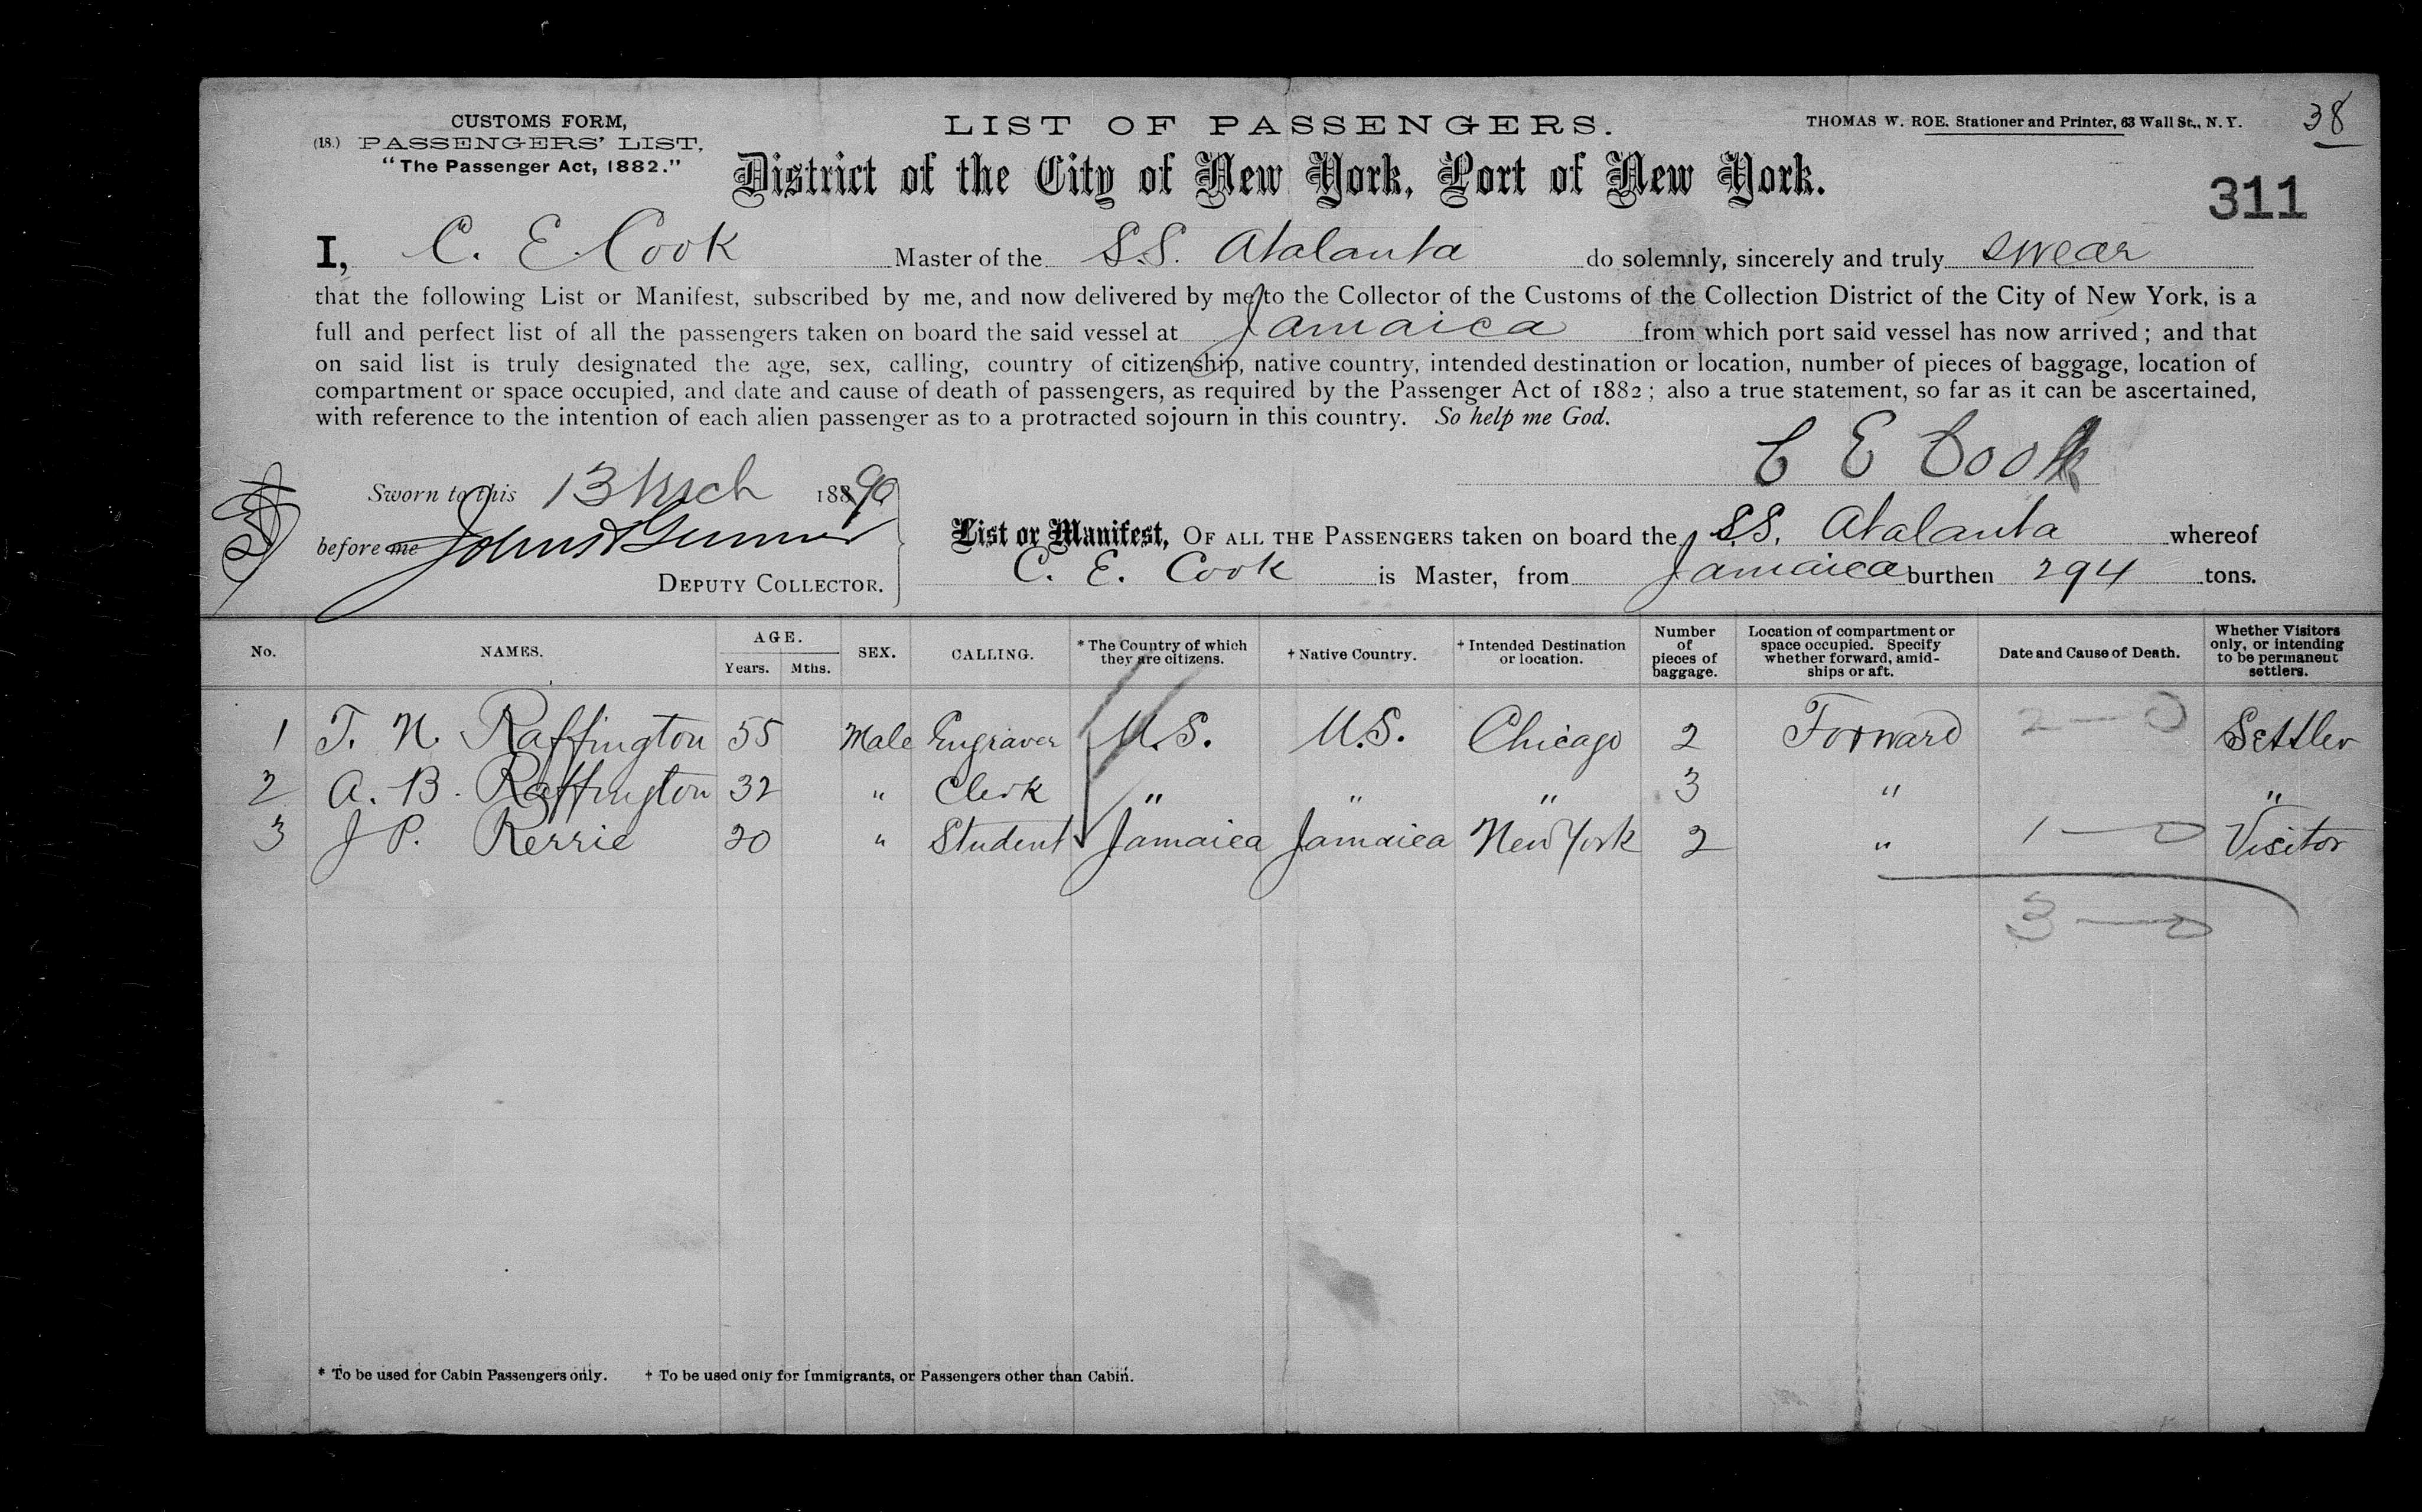 CUSTOMS FORM,
(18.) PASSENGERS' LIST,
"The Passenger Act, 1882."
LIST OF PASSENGERS.
THOMAS W. ROE. Stationer and Printer, 63 Wall St., N. Y.
38
District of the City of New York, Port of New York.
311
I, C. E. Cook Master of the S.S. Atalanta do solemnly, sincerely and truly swear
that the following List or Manifest, subscribed by me, and now delivered by me to the Collector of the Customs of the Collection District of the City of New York, is a
full and perfect list of all the passengers taken on board the said vessel at Jamaica from which port said vessel has now arrived; and that
on said list is truly designated the age, sex, calling, country of citizenship, native country, intended destination or location, number of pieces of baggage, location of
compartment or space occupied, and date and cause of death of passengers, as required by the Passenger Act of 1882; also a true statement, so far as it can be ascertained,
with reference to the intention of each alien passenger as to a protracted sojourn in this country. So help me God.
C E Cook
Sworn to this 13 Mch 1890
before me
DEPUTY COLLECTOR.
List or Manifest, OF ALL THE PASSENGERS taken on board the S.S. Atalanta whereof
C. E. Cook is Master, from Jamaica burthen 294 tons.
No. NAMES. AGE. Years. Mths. SEX. CALLING. * The Country of which they are citizens. † Native Country. † Intended Destination or location. Number of pieces of baggage. Location of compartment or space occupied. Specify whether forward, amidships or aft. Date and Cause of Death. Whether Visitors only, or intending to be permanent settlers.
1 T. N. Raffington 55 Male Engraver U.S. U.S. Chicago 2 Forward 2 — 0 Settler
2 A. B. Raffington 32 " Clerk " " " 3 " "
3 J P. Kerrie 20 " Student Jamaica Jamaica New York 2 " 1 — 0 Visitor
3 — 0
* To be used for Cabin Passengers only. † To be used only for Immigrants, or Passengers other than Cabin.